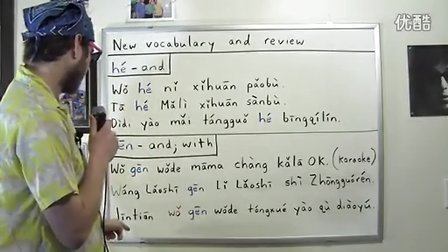 优酷
New vocabulary and review
hé - and
Wǒ hé nǐ xǐhuān pǎobù.
Tā hé Mǎlì xǐhuān sànbù.
Dìdi yào mǎi tángguǒ hé bīngqílín.
gēn - and; with
Wǒ gēn wǒde māma chàng kǎlā OK. (karaoke)
Wáng Lǎoshī gēn Lǐ Lǎoshī shì Zhōngguórén.
Jīntiān wǒ gēn wǒde tóngxué yào qù diàoyú.